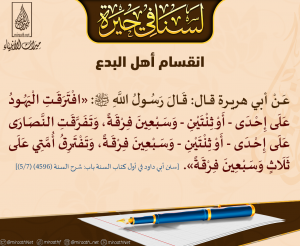 لسنا في حيرة
ميراث الأنبياء
انقسام أهل البدع
عَنْ أبي هريرة قال: قَالَ رَسُولُ اللَّهِ ﷺ: «افْتَرَقَتِ الْيَهُودُ
عَلَى إِحْدَى - أَوْ ثِنْتَيْنِ - وَسَبْعِينَ فِرْقَةً، وَتَفَرَّقَتِ النَّصَارَى
عَلَى إِحْدَى - أَوْ ثِنْتَيْنِ - وَسَبْعِينَ فِرْقَةً، وَتَفْتَرِقُ أُمَّتِي عَلَى
ثَلَاثٍ وَسَبْعِينَ فِرْقَةً». [سنن أبي داود في أول كتاب السنة باب: شرح السنة (4596) (5/7)]
miraathNet miraathf miraath_net miraathNet